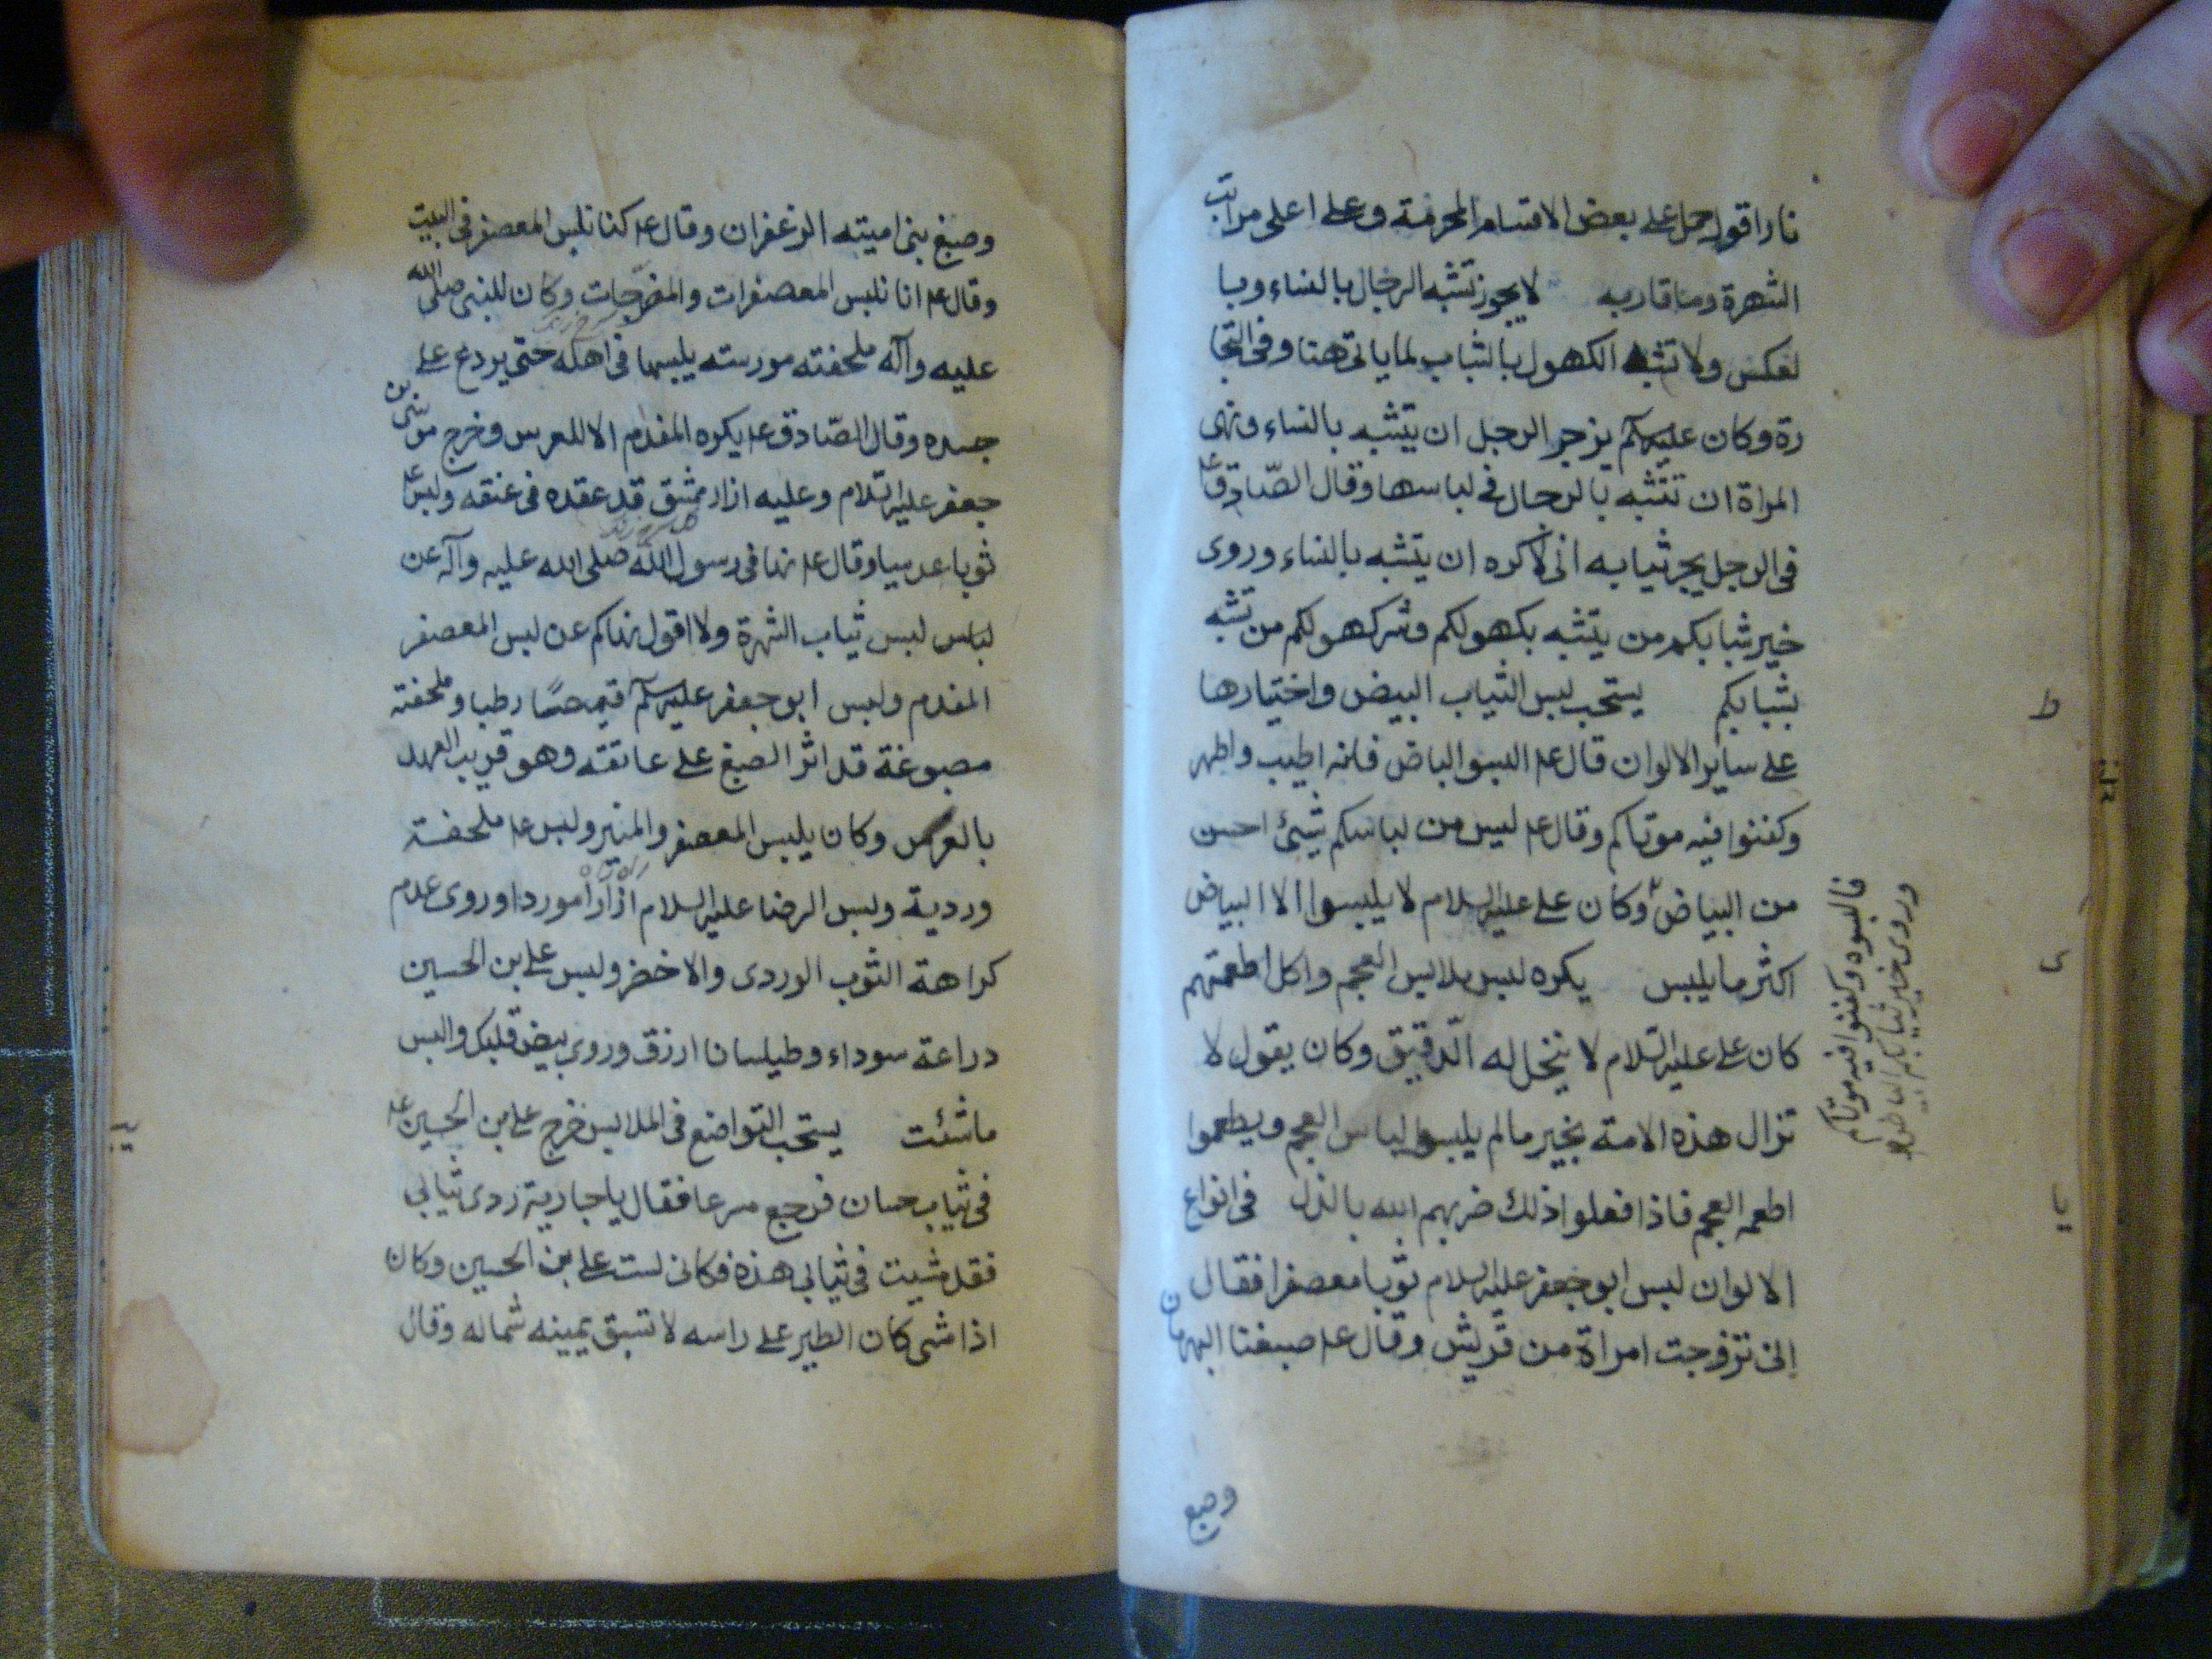 نارا اقول حمل على بعض الاقسام المحرمة وعلى اعلى مراتب
الشهرة وما قاربه لا يجوز تشبه الرجال بالنساء وبا
لعكس ولا تشبه الكهول بالشباب لما ياتى هنا وفى التجا
رة وكان عليه السلم يزجر الرجل ان يتشبه بالنساء ونهى
المراة ان تتشبه بالرجال فى لباسها وقال الصّادق ع
فى الرجل يجر ثيابه انى لاكره ان يتشبه بالنساء وروى
خير شبابكم من يتشبه بكهولكم وشر كهولكم من تشبه
بشبابكم يستحب لبس الثياب البيض واختيارها
على ساير الالوان قال ع البسوا البياض فانه اطيب واطهر
وكفنوا فيه موتاكم وقال ع ليس من لباسكم شيئ احسن
من البياض وكان على عليه السلام لا يلبسوا الا البياض
اكثر ما يلبس يكره لبس ملابس العجم واكل اطعمتهم
كان على عليه السّلام لا ينخل له الدّقيق وكان يقول لا
تزال هذه الامته بخير ما لم يلبسوا لباس العجم ويطعموا
اطعمه العجم فاذا فعلوا ذلك ضربهم الله بالذل فى انواع
الالوان لبس ابو جعفر عليه السلام ثوبا معصفرا فقال
انى تزوجت امراة من قريش وقال ع صبغنا البهرمان
فالبسوه وكفنوا فيه موتاكم
وروى خير ثيابكم
ط
ى
يا
وصبغ
وصبغ بنى اميته الزعفران وقال ع كنا نلبس المعصفر فى البيت
وقال ع انا نلبس المعصفرات والمضرجات وكان للنبى صلى الله
عليه وآله ملحفته مورسته يلبسها فى اهله حتى يردع على
جسده وقال الصّادق ع يكره المفدم الا للعرس وخرج موسى بن
جعفر عليه السّلام وعليه ازار ممشق قد عقده فى عنقه ولبس ع
ثوبا عدسيا وقال ع نهانى رسول الله صلى الله عليه وآله عن
لباس لبس ثياب الشهرة ولا اقول نهاكم عن لبس المعصفر
المفدم ولبس ابو جعفر عليه السلم قميصًا رطبا وملحفته
مصبوغة قد اثر الصبغ على عاتقه وهو قريب العهد
بالعرس وكان يلبس المعصفر والمنير ولبس ع ملحفته
وردية ولبس الرضا عليه السلام ازارا موردا وروى عدم
كراهة الثوب الوردى والاخضر ولبس على بن الحسين
دراعة سوداء وطيلسانا ازرق وروى بيض قلبك والبس
ماشئت يستحب التواضع فى الملابس خرج على بن الحسين ع
فى ثياب حسان فرجع مسرعا فقال يا جارية ردى ثيابى
فقد مشيت فى ثيابى هذه فكانى لست على بن الحسين وكان
اذا مشى كان الطير على راسه لا تسبق يمينه شماله وقال
يب